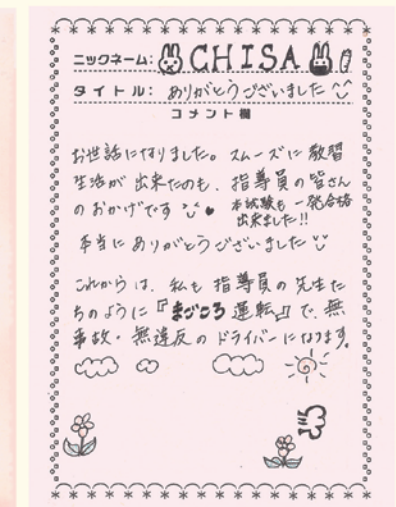 ニックネーム: CHISA
タイトル: ありがとうございました
コメント欄
お世話になりました。スムーズに教習
生活が出来たのも、指導員の皆さん
のおかげです
※試験も一発合格
出来ました!!
本当にありがとうございました
これからは、私も指導員の先生た
ちのように『まごころ運転』で、無
事故・無違反のドライバーになります。